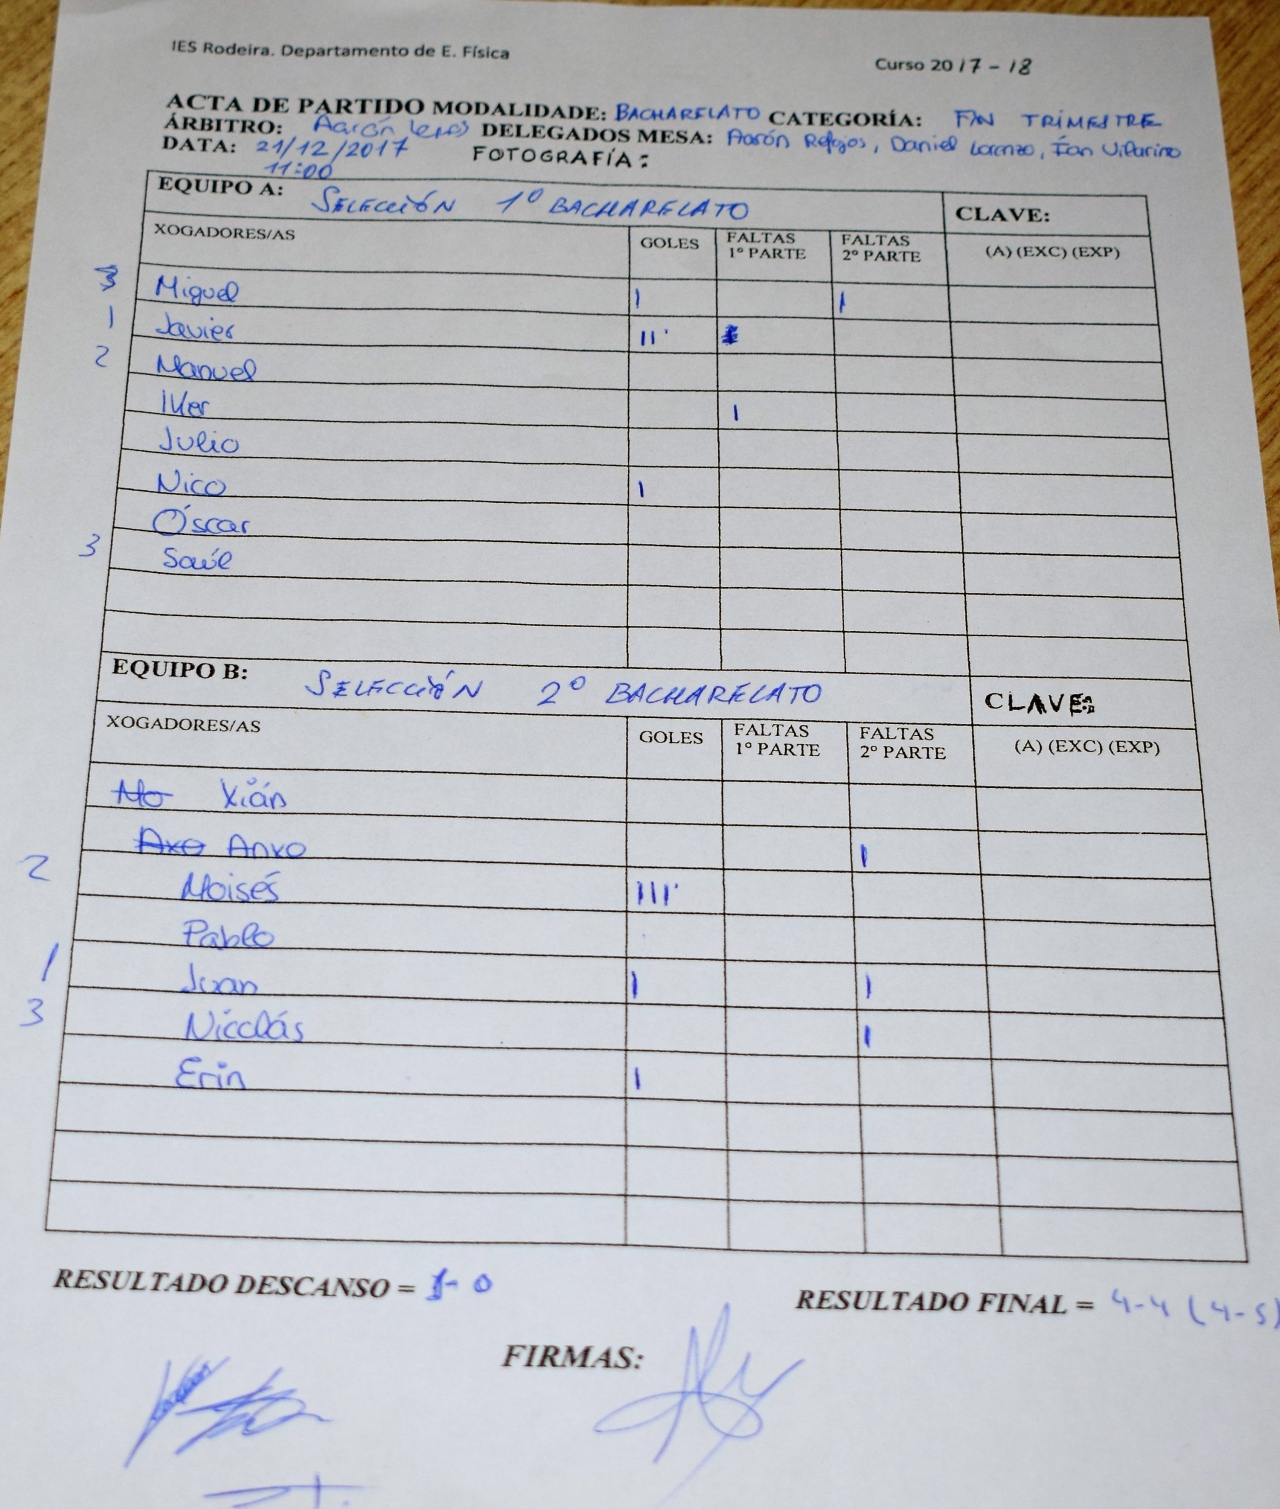 IES Rodeira. Departamento de E. Física
Curso 2017-18
ACTA DE PARTIDO MODALIDADE: BACHARELATO CATEGORÍA: FIN TRIMESTRE
ÁRBITRO: Aarón DELEGADOS MESA: Aarón Refojos, Daniel Lorenzo, Ian Vilariño
DATA: 21/12/2017 FOTOGRAFÍA:
11:00
EQUIPO A: SELECCIÓN 1º BACHARELATO CLAVE:
XOGADORES/AS GOLES FALTAS 1º PARTE FALTAS 2º PARTE (A) (EXC) (EXP)
3 Miguel I I
1 Javier II'
2 Manuel
Iker I
Julio
Nico I
Óscar
3 Saúl
EQUIPO B: SELECCIÓN 2º BACHARELATO CLAVE:
XOGADORES/AS GOLES FALTAS 1º PARTE FALTAS 2º PARTE (A) (EXC) (EXP)
Mo Xián
Axo Anxo I
2 Moisés III'
Pablo
1 Juan I I
3 Nicolás I
Erin I
RESULTADO DESCANSO = 1-0
RESULTADO FINAL = 4-4 (4-5)
FIRMAS: